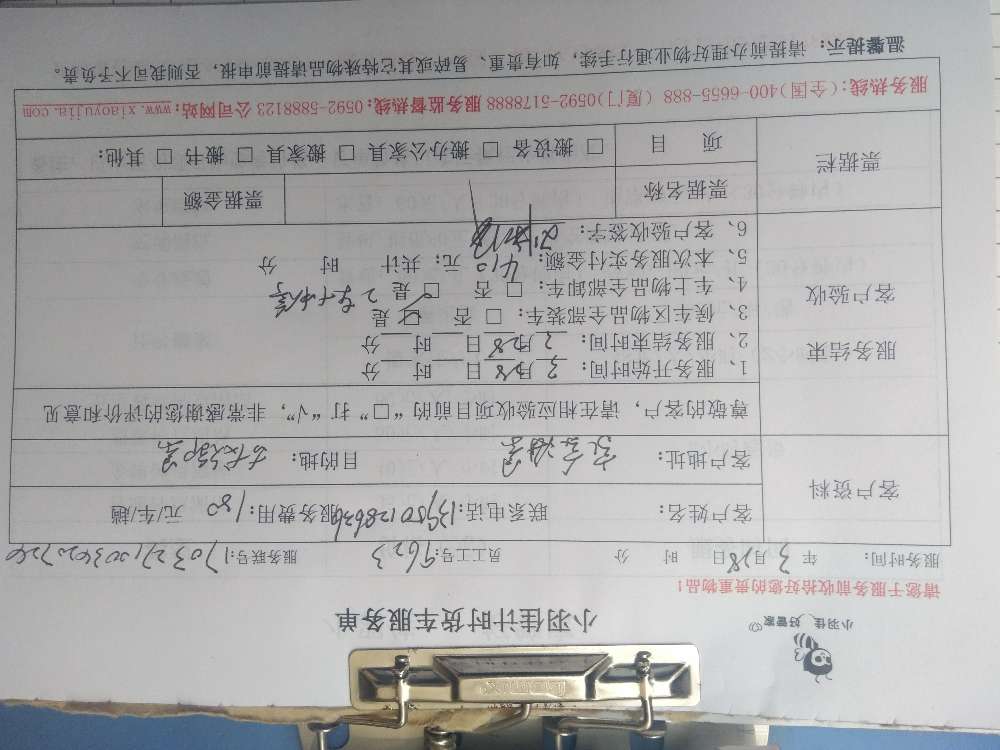 小羽佳 好管家
小羽佳计时货车服务单
请您于服务前收拾好您的贵重物品！
服务时间： 年 3月28日 时 分 员工工号：9623 服务联号：
客户资料
客户姓名： 联系电话： 服务费用：180 元/车/趟
客户地址： 目的地：
尊敬的客户，请在相应验收项目前的“□”打“√”，非常感谢您的评价和意见
服务结束
客户验收
1、服务开始时间：3月28日 时 分
2、服务结束时间：3月28日 时 分
3、候车区物品全部车装：□ 否 □ 是
4、车上物品全部卸车：□ 否 □ 是
5、本次服务实付金额：410元；共计 时 分
6、客户验收签字：
票据栏
票据名称 票据金额
项 目 □ 搬设备 □ 搬办公家具 □ 搬家具 □ 搬书 □ 其他：
服务热线：(全国)400-6655-888 (厦门)0592-5178888 服务监督热线：0592-5888123 公司网站：www.xiaoyujia.com
温馨提示：请提前办理好物业通行手续，如有贵重、易碎或其它特殊物品请提前申报，否则我司不予负责。